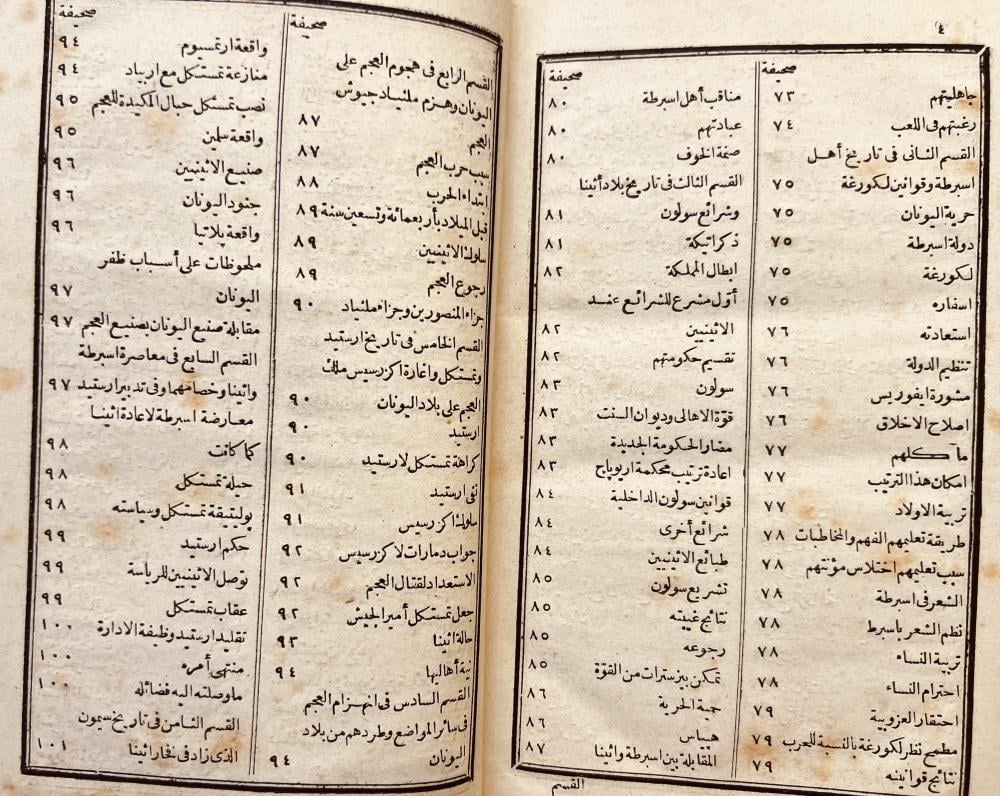 ٤
صحيفة
جاهليتهم ٧٣
رغبتهم فى اللعب ٧٤
القسم الثانى فى تاريخ أهل
اسبرطة وقوانين لكورغة ٧٥
حرية اليونان ٧٥
دولة اسبرطة ٧٥
لكورغة ٧٥
اسفاره ٧٥
استعادته ٧٦
تنظيم الدولة ٧٦
مشورة ايفوريس ٧٦
اصلاح الاخلاق ٧٦
مآكلهم ٧٧
امكان هذا الترتيب ٧٧
تربية الاولاد ٧٧
طريقة تعليمهم الفهم والمخاطبات ٧٨
سبب تعليمهم اختلاس مؤنتهم ٧٨
الشعر فى اسبرطة ٧٨
نظم الشعر باسبرط ٧٨
تربية النساء ٧٨
احترام النساء ٧٨
احتقار العزوبية ٧٩
مطمح نظر لكورغة بالنسبة للحرب ٧٩
نتائج قوانينه ٧٩
صحيفة
مناقب أهل اسبرطة ٨٠
عبادتهم ٨٠
صفة الخوف ٨٠
القسم الثالث فى تاريخ بلاد أثينا
وشرائع سولون ٨١
ذكراتيكة ٨١
ابطال المملكة ٨٢
أول مشرع للشرائع عند
الاثينيين ٨٢
تقسيم حكومتهم ٨٢
سولون ٨٣
قوة الاهالى وديوان السنت ٨٣
مضار الحكومة الجديدة ٨٣
اعادة ترتيب محكمة اريوپاج ٨٣
قوانين سولون الداخلية ٨٤
شرائع أخرى ٨٤
طبائع الاثينيين ٨٤
تشريع سولون ٨٥
نتائج غيبته ٨٥
رجوعه ٨٥
تمكن بيزسترات من القوة ٨٥
حمية الحرية ٨٦
هيباس ٨٦
المقابلة بين اسبرطة وأثينا ٨٧
القسم
صحيفة
القسم الرابع فى هجوم العجم على
اليونان وهزم ملثياد جيوش
العجم ٨٧
سبب حرب العجم ٨٧
ابتداء الحرب ٨٨
قبل الميلاد بأربعمائة وتسعين سنة ٨٩
سلوك الاثينيين ٨٩
رجوع العجم ٨٩
جزاء المنصورين وجزاء ملثياد ٩٠
القسم الخامس فى تاريخ ارستيد
وتمستكل واغارة اكزرسيس ملك
العجم على بلاد اليونان ٩٠
ارستيد ٩٠
كراهة تمستكل لارستيد ٩٠
نفى ارستيد ٩١
سلوك اكزرسيس ٩١
جواب دمارات لاكزرسيس ٩٢
الاستعداد لقتال العجم ٩٢
جعل تمستكل أمير الجيش ٩٢
حالة اثينا ٩٣
نية أهاليها ٩٤
القسم السادس فى انهزام العجم
فى سائر المواضع وطردهم من بلاد
اليونان ٩٤
صحيفة
واقعة ارتمسيوم ٩٤
منازعة تمستكل مع اربياد ٩٤
نصب تمستكل حبال المكيدة للعجم ٩٥
واقعة سلمين ٩٥
صنيع الاثينيين ٩٦
جنود اليونان ٩٦
واقعة پلاتيا ٩٦
ملحوظات على أسباب ظفر
اليونان ٩٧
مقابلة صنيع اليونان بصنيع العجم ٩٧
القسم السابع فى معاصرة اسبرطة
واثينا وخصامهما وفى تدبير ارستيد ٩٧
معارضة اسبرطة لاعادة اثينا
كما كانت ٩٨
حيلة تمستكل ٩٨
پوليتيقة تمستكل وسياسته ٩٨
حكم ارستيد ٩٩
توصل الاثينيين للرياسة ٩٩
عقاب تمستكل ٩٩
تقليد ارستيد وظيفة الادارة ١٠٠
منتهى أمره ١٠٠
ما وصلته اليه فضائله ١٠٠
القسم الثامن فى تاريخ سيمون
الذى زاد فى فخار اثينا ١٠١